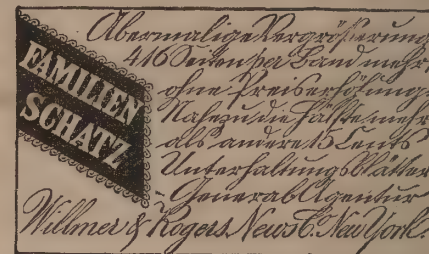 FAMILIEN
SCHATZ
Abermalige Vergrößerung
416 Seiten per Band mehr,
ohne Preiserhöhung.
Nahezu die Hälfte mehr
als andere 15 Cents
Unterhaltungs Blätter
- General Agentur
Willmer & Rogers News C. New York.